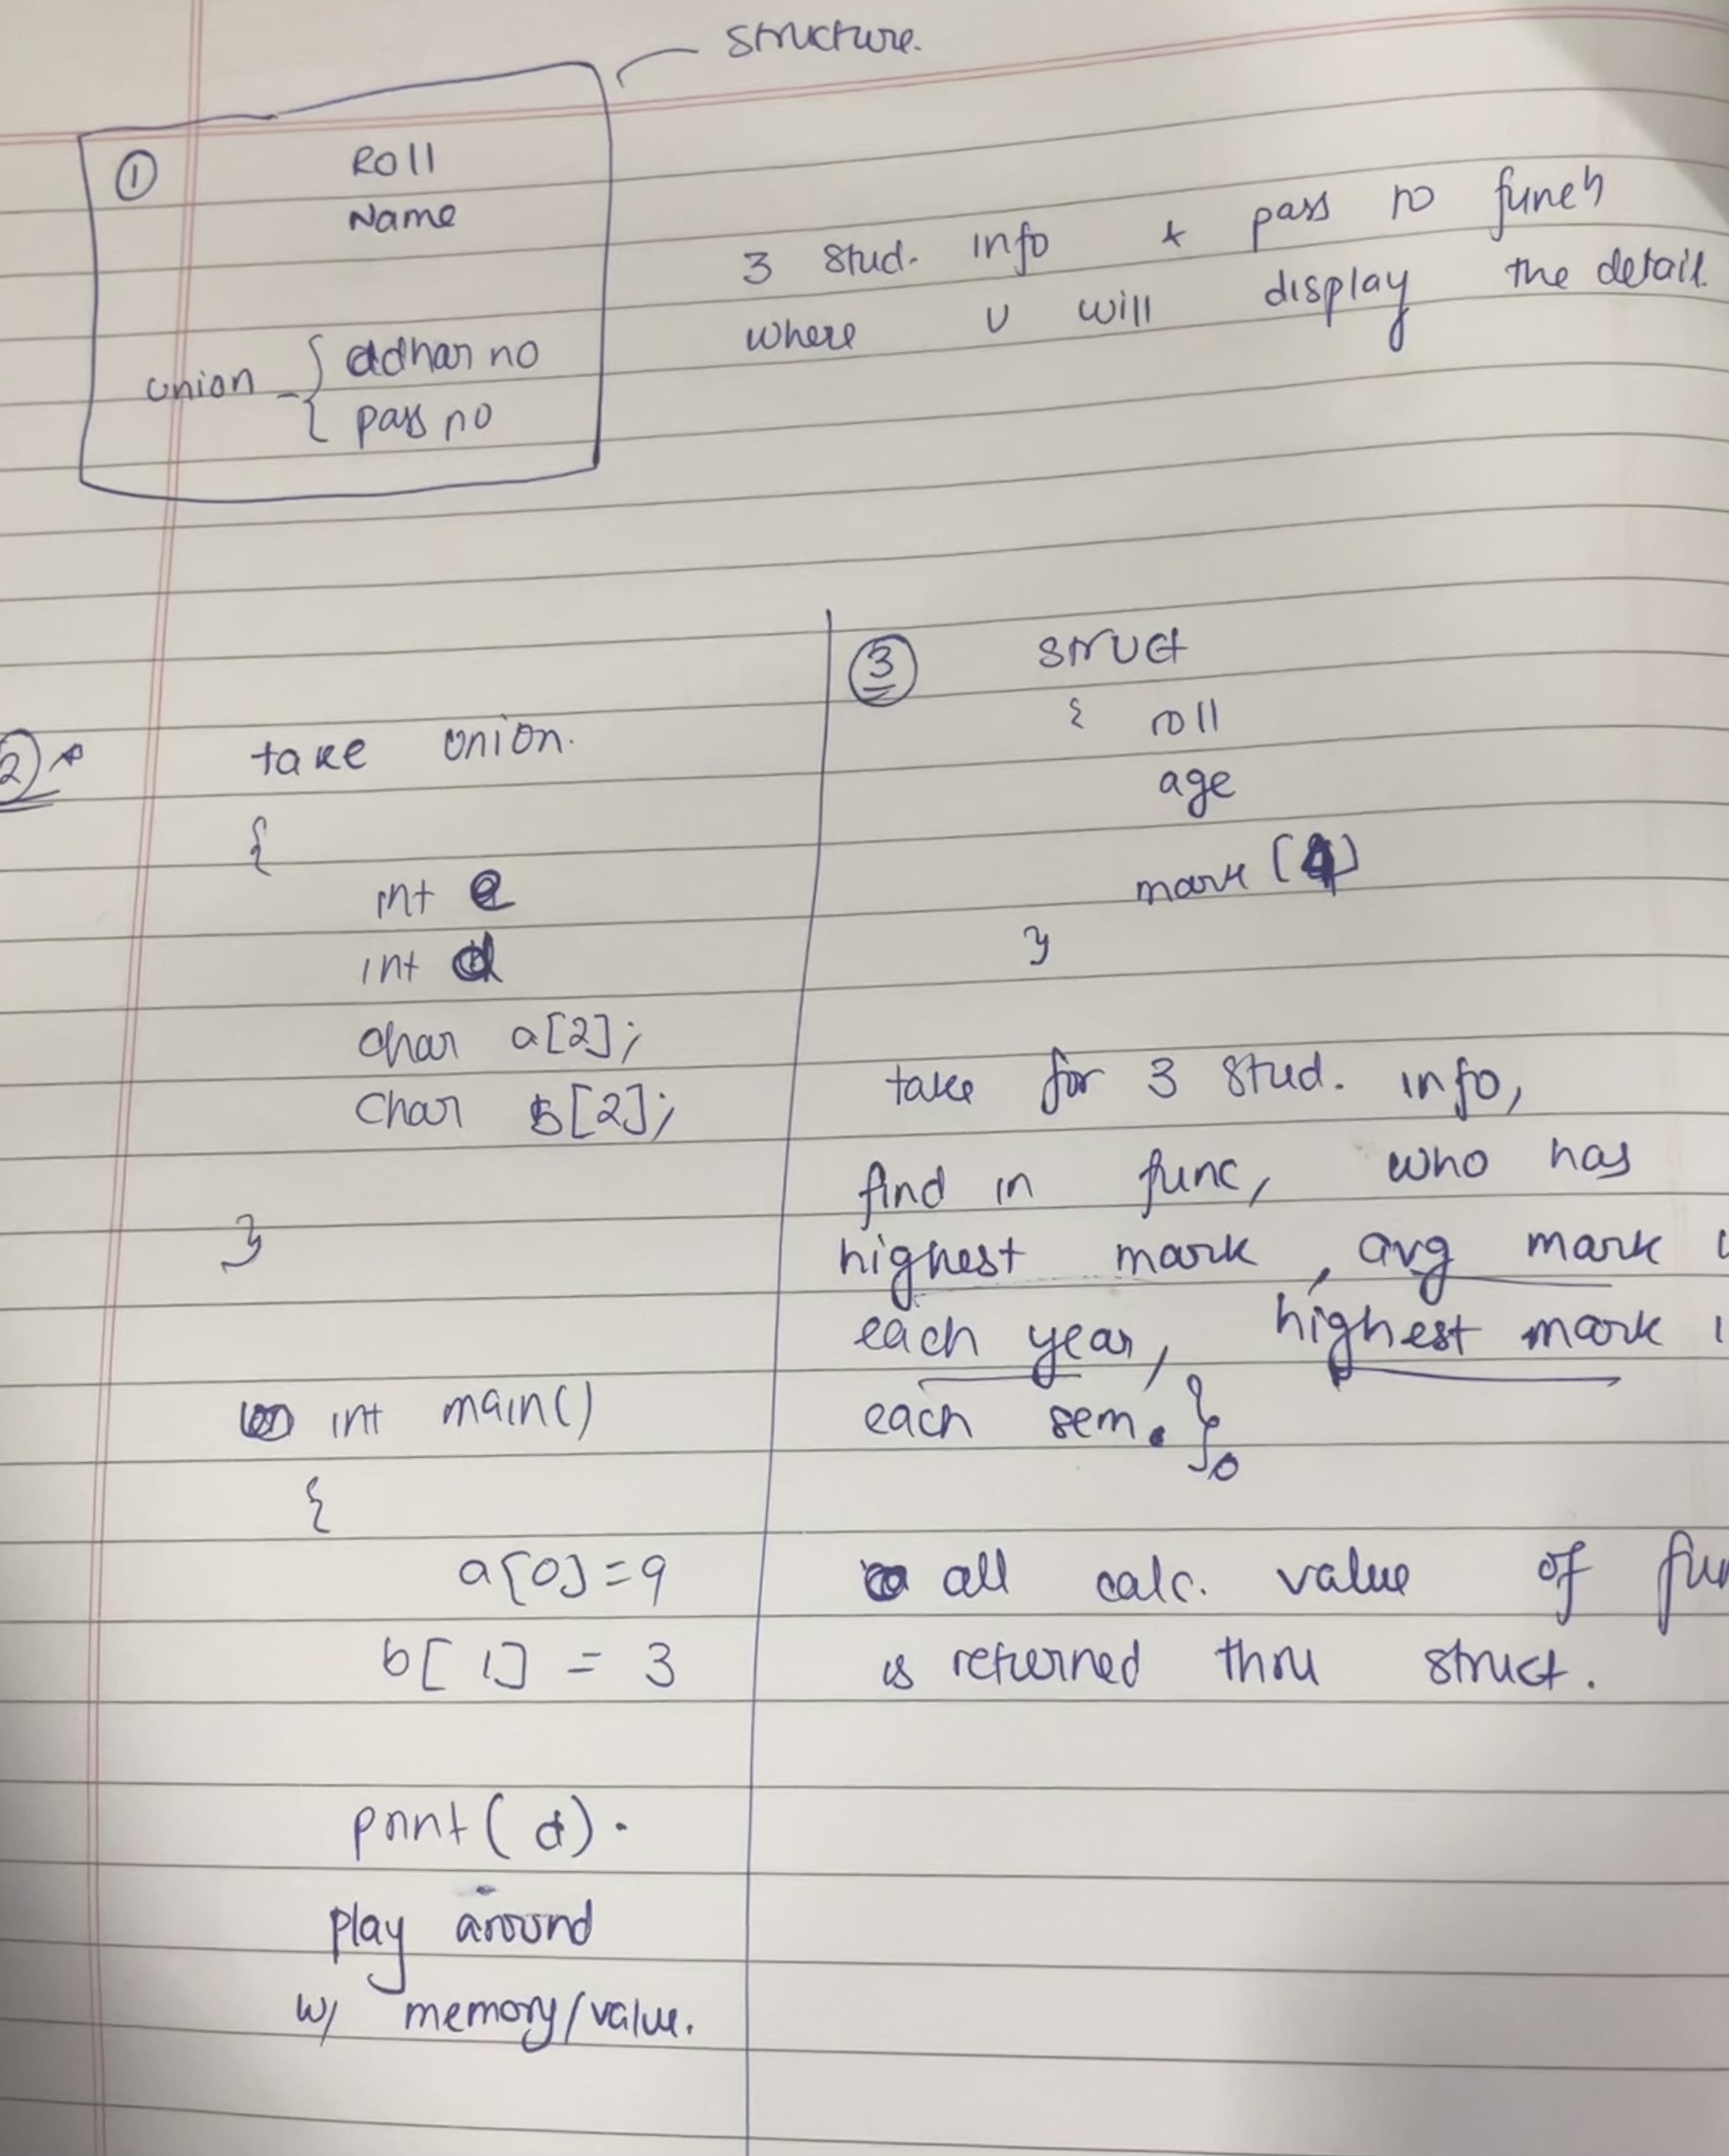 structure.
① Roll
Name
union { adhar no
pass no
3 stud. info & pass to funcn
where u will display the detail.
2)
take union.
{
int e
int d
char a[2];
char b[2];
}
int main()
{
a[0]=9
b[1] = 3
print(d).
play around
w/ memory/value.
③ struct
{ roll
age
mark [4]
}
take for 3 stud. info,
find in func, who has
highest mark, avg mark
each year, highest mark
each sem. }
all calc. value of
is returned thru struct.